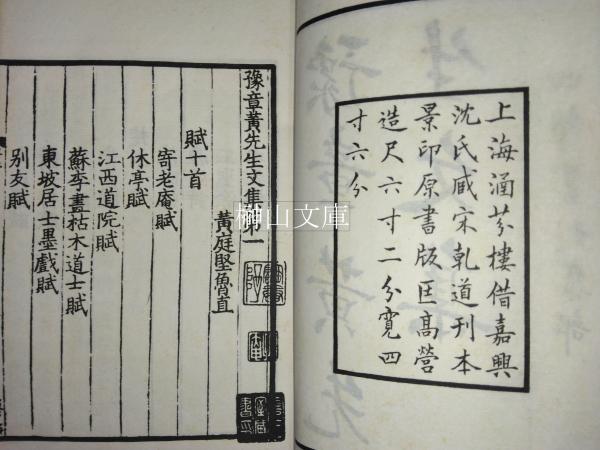 上海涵芬樓借嘉興
沈氏臧宋乹道刊本
景印原書版匡髙營
造尺六寸二分寬四
寸六分
豫章黃先生文集第一
黃庭堅魯直
賦十首
寄老庵賦
休亭賦
江西道院賦
蘇李畫枯木道士賦
東坡居士墨戲賦
別友賦
榊山文庫